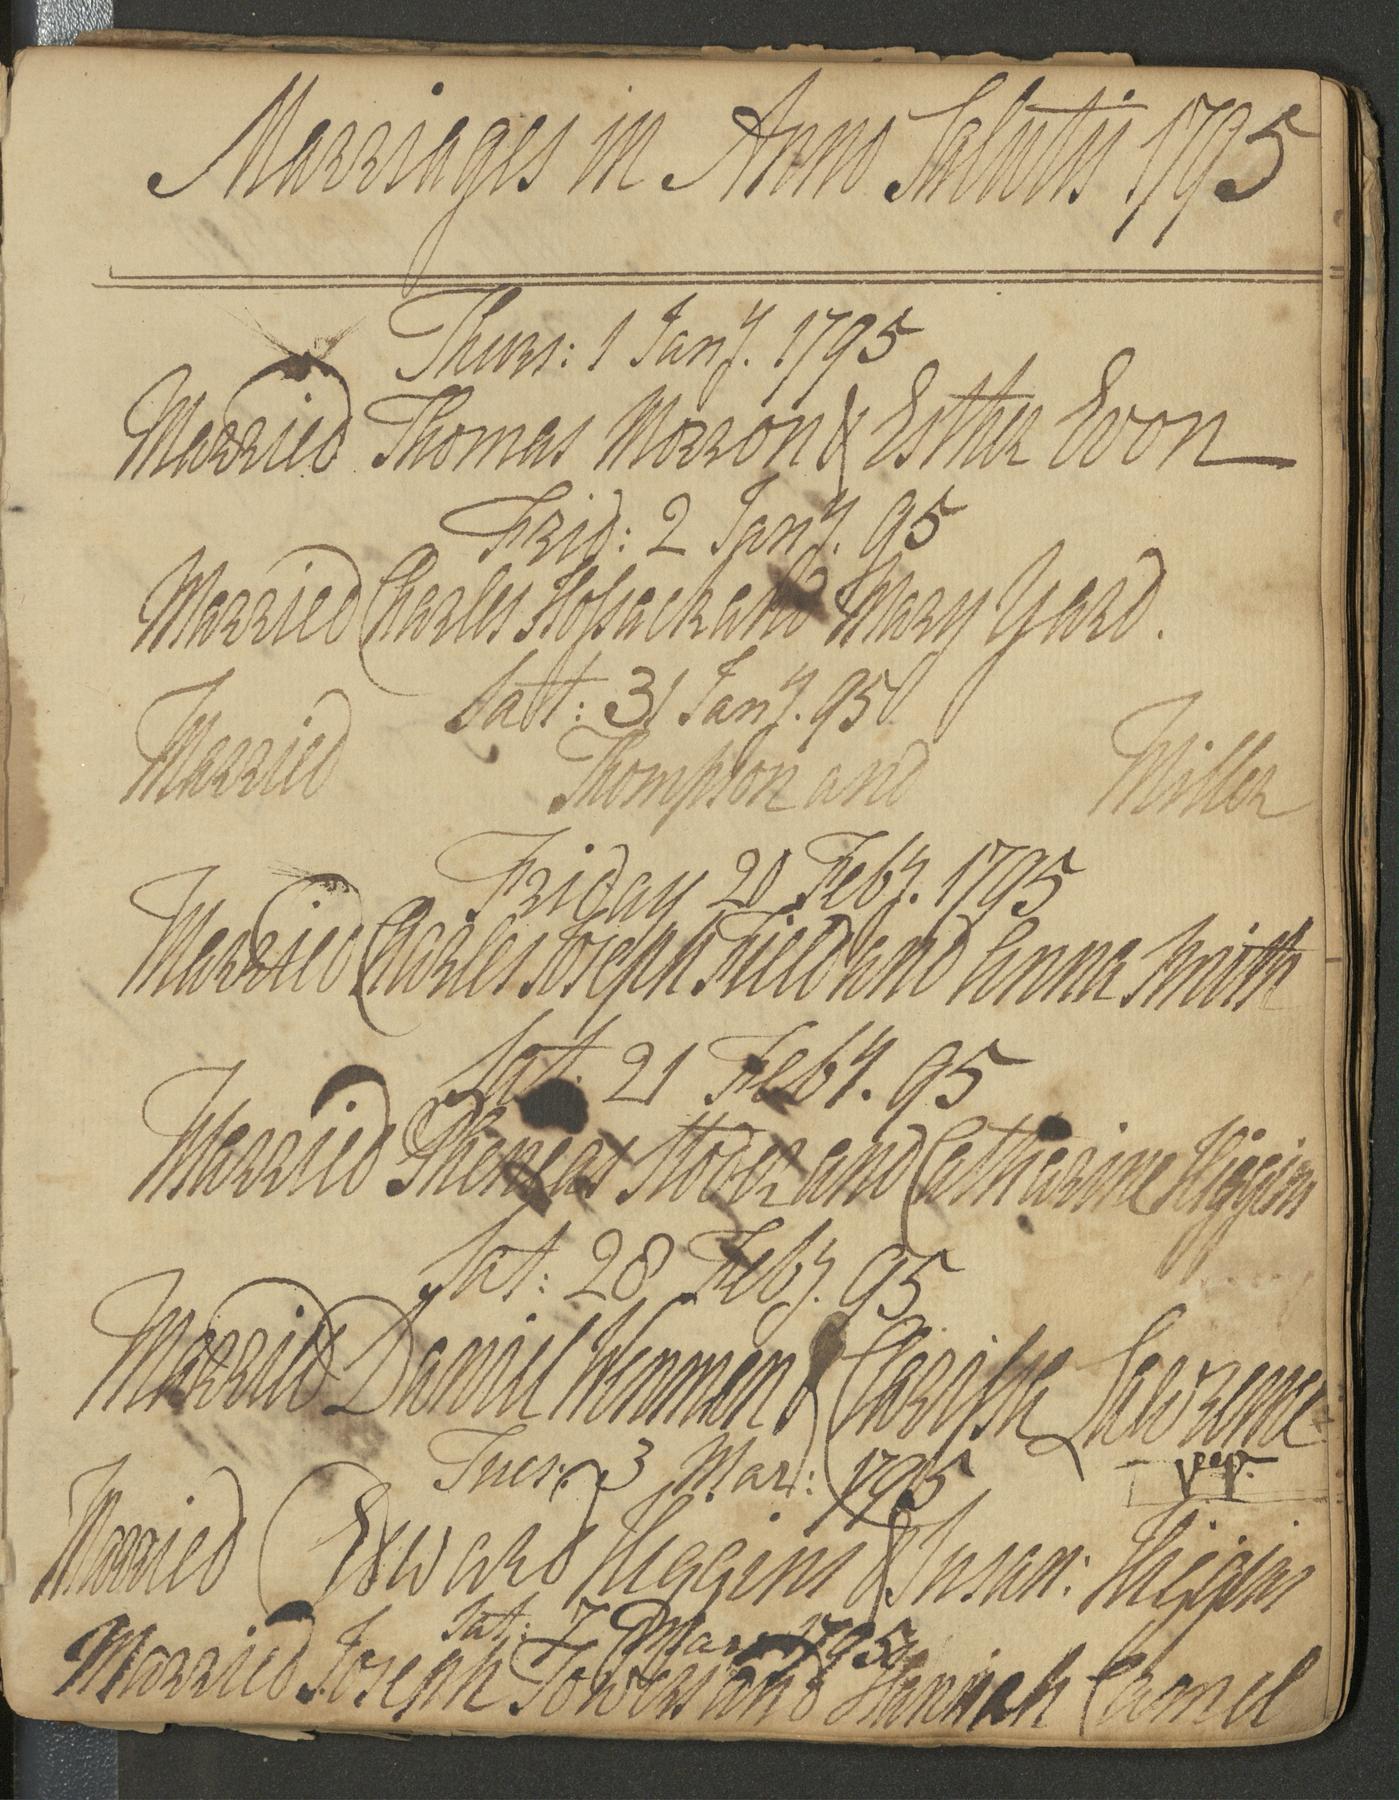 Marriages in Anno Salutis 1795
Thurs: 1 Jany. 1795
Married Thomas Morron & Esther Evon
Frid: 2 Jany. 95
Married Charles Hossack and Mary Yard.
Satt: 31 Jany. 95
Married Thompson and Miller
Friday 20 Feby. 1795
Married Charles Joseph Field and Anna Smith
Sat. 21 Feby. 95
Married Pheneas Stover and Catharine Higgins
Sat: 28 Feby. 95
Married Daniel Wenman & Clarissa Lawrence
Tues: 3 Mar: 1795
Married Edward Higgins & Susan: Higgins
Sat: 7 Mar: 1795
Married Joseph Towers and Hannah